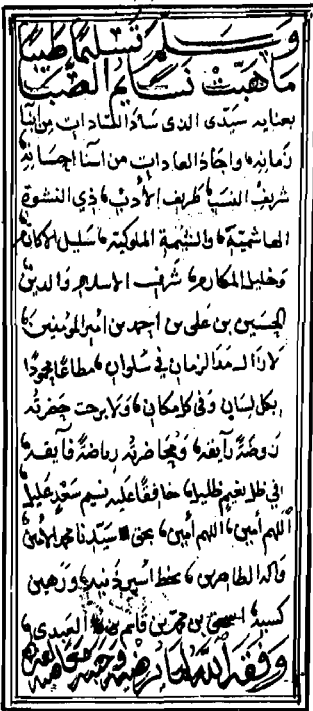 وسلم تسليما طيبا
ما هبت نسايم الصبا
بعنايه سيدى الذى ساد السادات من ابنا
زمانه واجاد العادات من اسنا احسانه
شريف النسب ظريف الأدب ذي النشوة
الهاشمية والشيمة الملوكية سليل الاكارم
وخليل المكارم شرف الاسلام والدين
الحسين بن على بن احمد بن امير المومنين
لازال مدا الزمان في سلوان مطاعا محمودا
بكل لسان وفى كل مكان ولا برحت حضرته
روضة رايقه ومحاضرته رياضة فايقه
في ظل نعيم ظليل خافقا عليه نسيم سعد عليل
اللهم أمين اللهم أمين بحق سيدنا محمد الأمين
واله الطاهرين بخط اسير ذنبه ورهين
كسبه اسحق بن محمد بن قاسم العبدي
وفقه الله لما يرضيه